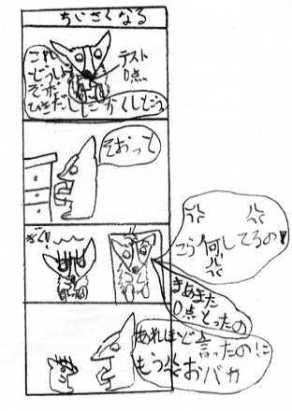 ちいさくなる
これ
どうし
ぞうだ
ひきだ
しにかくしとこう
テスト
0点
そおって
ギク!
こう何してるの!
まあまた
0点とったの
あれほど言ったのに
もう おバカ